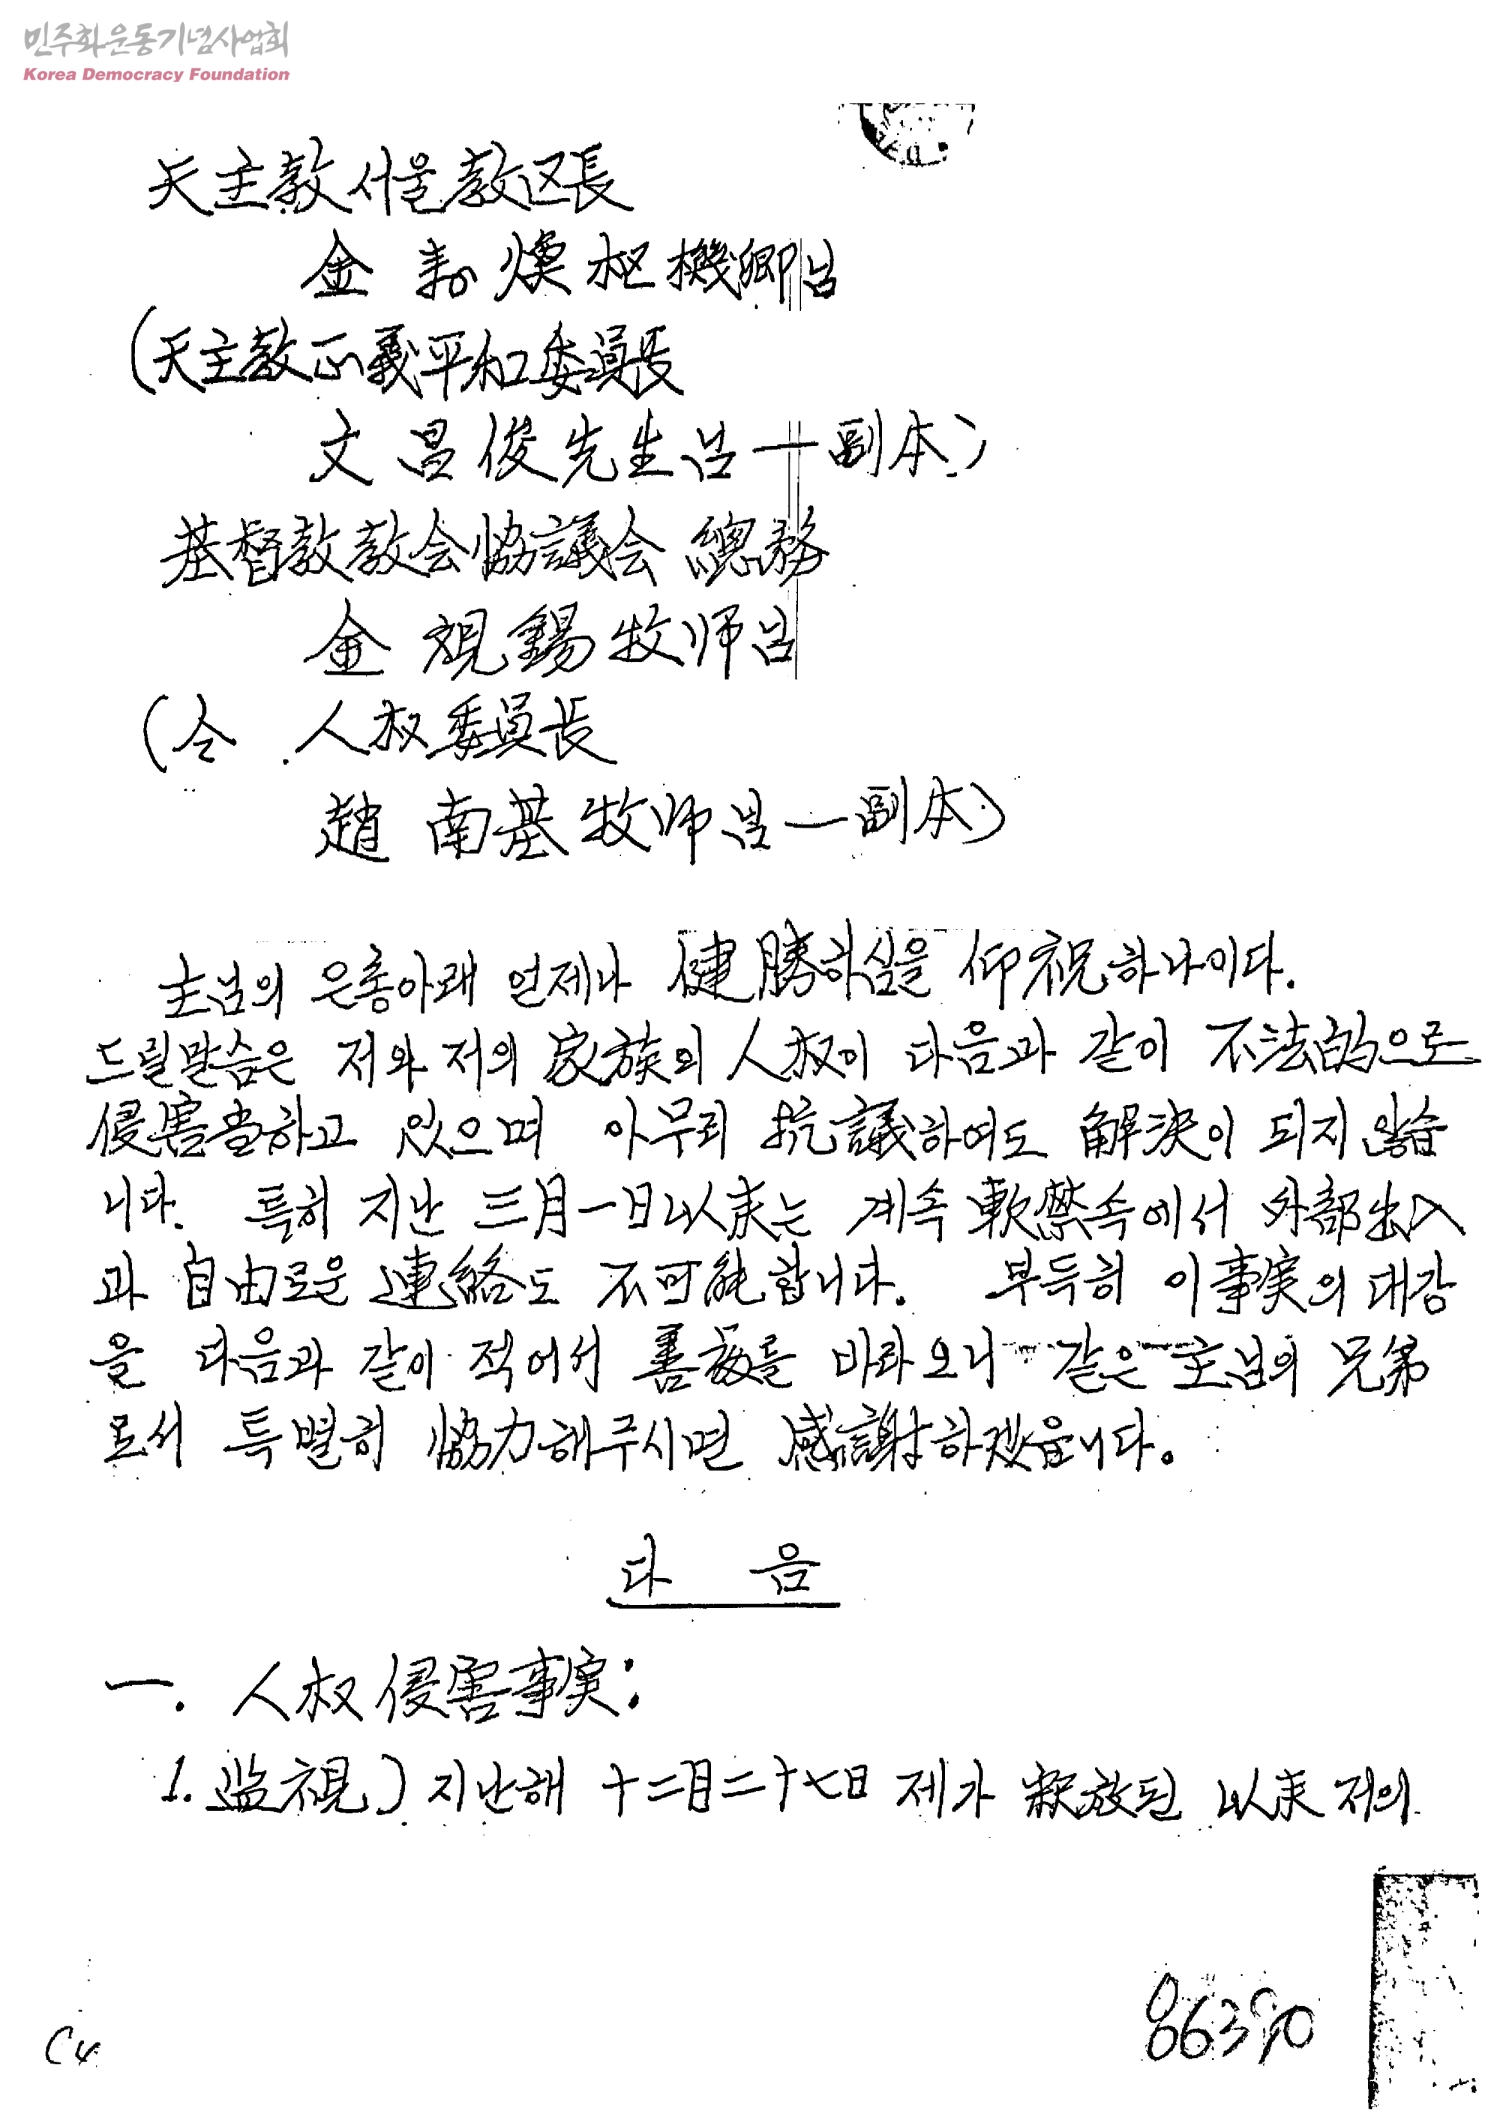 민주화운동기념사업회
Korea Democracy Foundation
天主教서울教区長
金寿煥枢機卿님
(天主教正義平和委員長
文昌俊先生님—副本)
基督教教会協議会 總務
金観錫牧师님
(仝 人权委員長
趙南基牧师님—副本)
主님의 은총아래 언제나 健勝하심을 仰祝하나이다.
드릴말슴은 저와 저의 家族의 人权이 다음과 같이 不法的으로
侵害当하고 있으며 아무리 抗議하여도 解決이 되지 않습
니다. 특히 지난 三月一日以来는 계속 軟禁속에서 外部出入
과 自由로운 連絡도 不可能합니다. 부득히 이 事実의 대강
을 다음과 같이 적어서 善處를 바라오니 같은 主님의 兄弟
로서 특별히 協力해주시면 感謝하겠읍니다.
다 음
一. 人权侵害事実:
1. 监視) 지난해 十二月二十七日 제가 釈放된 以来 저의
C4
86390